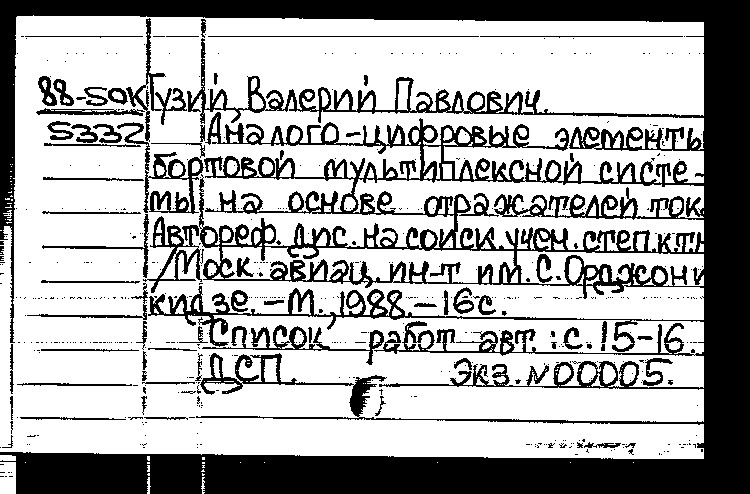 88-50К Гузий, Валерий Павлович.
5332 Аналого-цифровые элементы
бортовой мультиплексной систе-
мы на основе отражателей ток
Автореф. дис. на соиск. учен. степ. к.т.н
/Моск. авиац. ин-т им. С. Орджони
кидзе. – М., 1988. – 16 с.
Список работ авт.: с. 15-16.
ДСП. Экз. №00005.